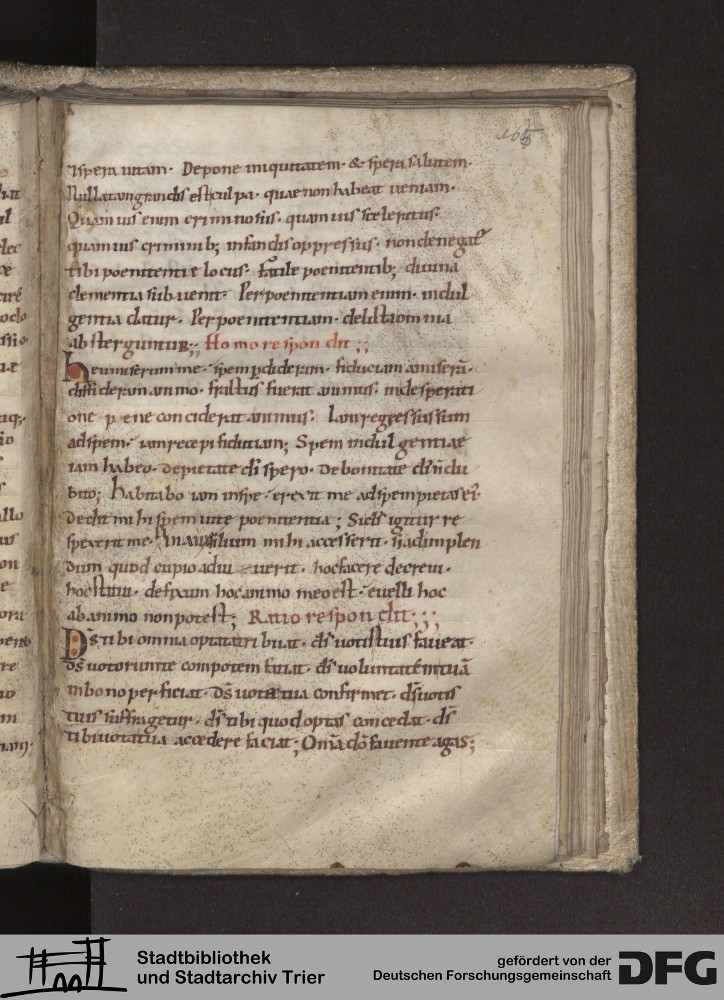 105
& spera uitam· Depone iniquitatem· & spera salutem·
Nulla tam grandis est culpa· quae non habeat ueniam·
Quamuis enim criminosus· quamuis sceleratus·
quamuis criminib; infandis oppressus· non denegat᷑
tibi poenitentię locus· Facile poenitentib; diuina
clementia subuenit· Per poenitentiam enim· indul
gentia datur· Per poenitentiam· delicta omnia
absterguntur;; Homo respondit;;
heu miserum me· spem p̱dideram· fiduciam amiserā·
diffideram animo· fractus fuerat animus· in desperati
one pene conciderat animus· Iam regressus sum
ad spem· iam recepi fiduciam; Spem indulgentiae
iam habeo· de pietate dī spero· de bonitate dī n̄ du
bito; habitabo iam in spe· erexit me ad spem pietas ei᷒·
Dedit mihi spem uitę poenitentia; Si ds̄ igitur re
spexerit me· si auxilium mihi accesserit· si ad implen
dum quod cupio adiuuerit· hoc facere decreui·
hoc statui· defixum hoc animo meo est· euelli hoc
ab animo non potest; Ratio respondit;;;
Ds̄ tibi omnia optata tribuat· ds̄ uotis tuis faueat·
ds̄ uotorum te compotem faciat· ds̄ uoluntatē tuā
in bono perficiat· Ds̄ uota tua confirmet· ds̄ uotis
tuis suffragetur· ds̄ tibi quod optas concedat· ds̄
tibi uota tua accedere faciat; Om̄a dō fauente agas;
Stadtbibliothek
und Stadtarchiv Trier
gefördert von der
Deutschen Forschungsgemeinschaft
DFG